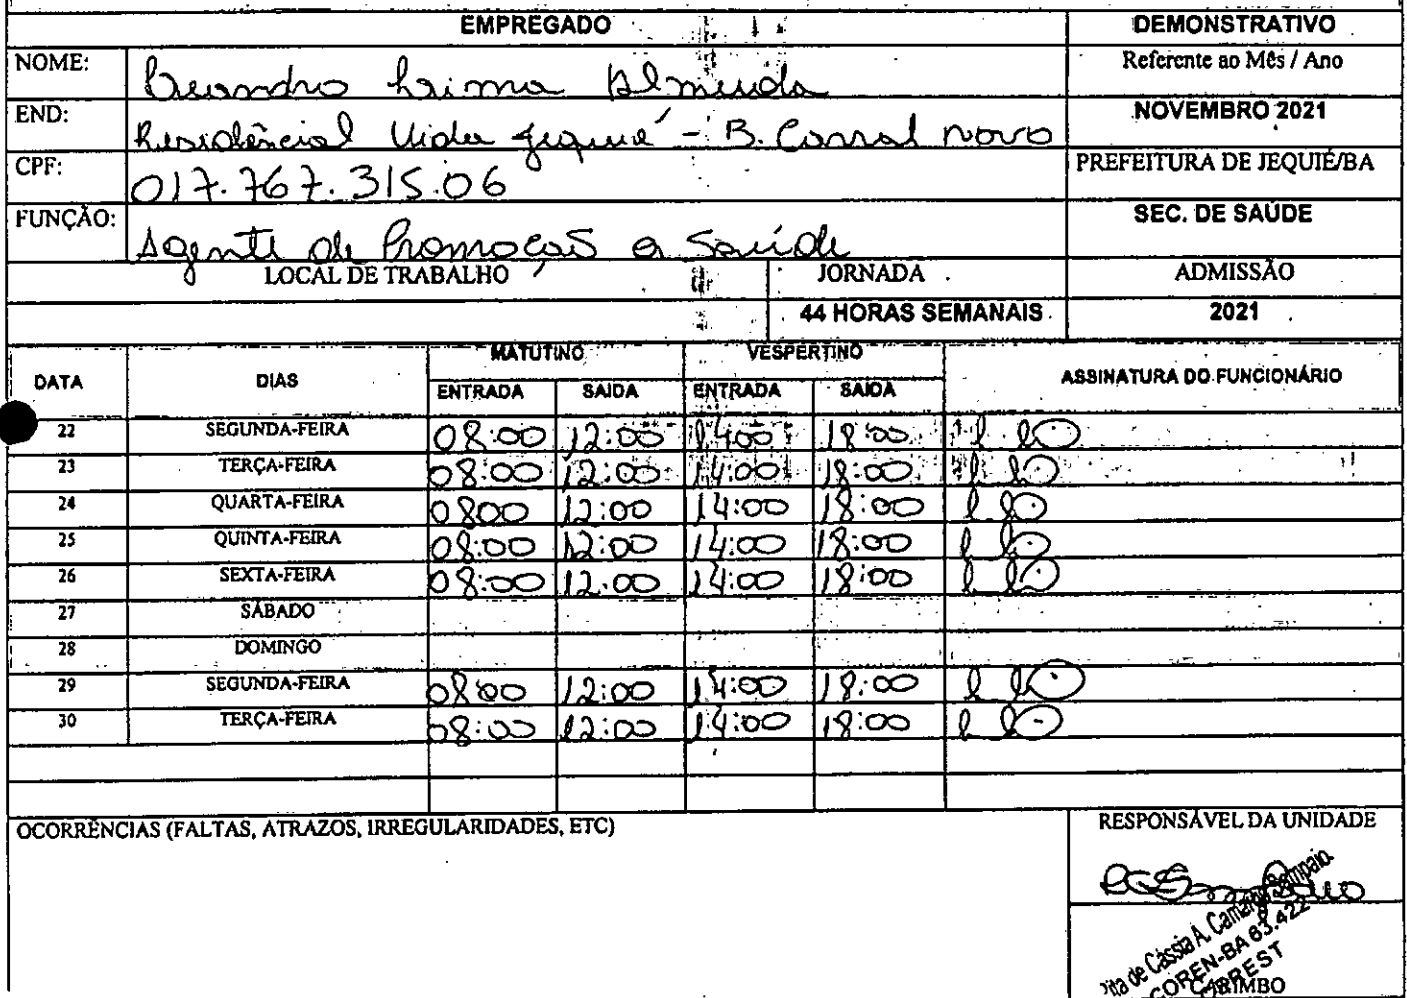 EMPREGADO DEMONSTRATIVO
NOME: Leandro Lima Almeida Referente ao Mês / Ano
END: Residêncial Vida Jequié - B. Corral Novo NOVEMBRO 2021
CPF: 017.767.315.06 PREFEITURA DE JEQUIÉ/BA
FUNÇÃO: Agente de Promoção a Saúde SEC. DE SAÚDE
LOCAL DE TRABALHO JORNADA ADMISSÃO
44 HORAS SEMANAIS 2021
MATUTINO VESPERTINO
DATA DIAS ASSINATURA DO FUNCIONÁRIO
ENTRADA SAIDA ENTRADA SAIDA
22 SEGUNDA-FEIRA 08:00 12:00 14:00 18:00
23 TERÇA-FEIRA 08:00 12:00 14:00 18:00
24 QUARTA-FEIRA 0800 12:00 14:00 18:00
25 QUINTA-FEIRA 08:00 12:00 14:00 18:00
26 SEXTA-FEIRA 08:00 12:00 14:00 18:00
27 SÁBADO
28 DOMINGO
29 SEGUNDA-FEIRA 08:00 12:00 14:00 18:00
30 TERÇA-FEIRA 08:00 12:00 14:00 18:00
OCORRÊNCIAS (FALTAS, ATRAZOS, IRREGULARIDADES, ETC) RESPONSÁVEL DA UNIDADE
Rita de Cássia A. Camargo Sampaio
COREN-BA 63.422
CEREST
CARIMBO